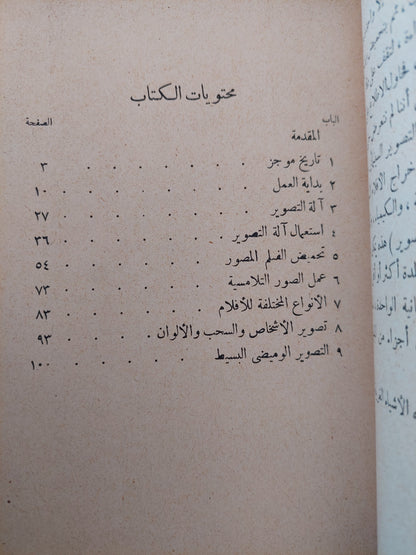 محتويات الكتاب
الباب الصفحة
المقدمة
١ تاريخ موجز . . . . . . ٣
٢ بداية العمل . . . . . . ١٠
٣ آلة التصوير . . . . . . ٢٧
٤ استعمال آلة التصوير . . . . . ٣٦
٥ تحميض الفيلم المصور . . . . . ٥٤
٦ عمل الصور التلامسية . . . . . ٧٣
٧ الأنواع المختلفة للأفلام . . . . . ٨٣
٨ تصوير الأشخاص والسحب والألوان . . . ٩٣
٩ التصوير الوميضى البسيط . . . . ١٠٠